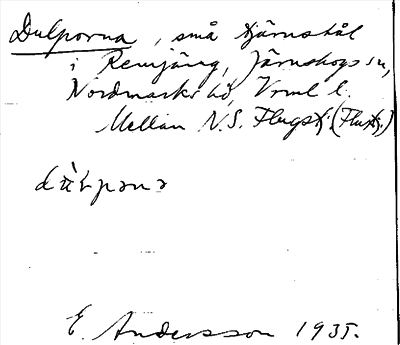 Dulporna, små tjärnstäl
i Remjäng, Järnskogs sn,
Nordmarks hd, Vrml l.
Mellan N. S. Flugstj. (Flustj.)
E. Andersson 1935.